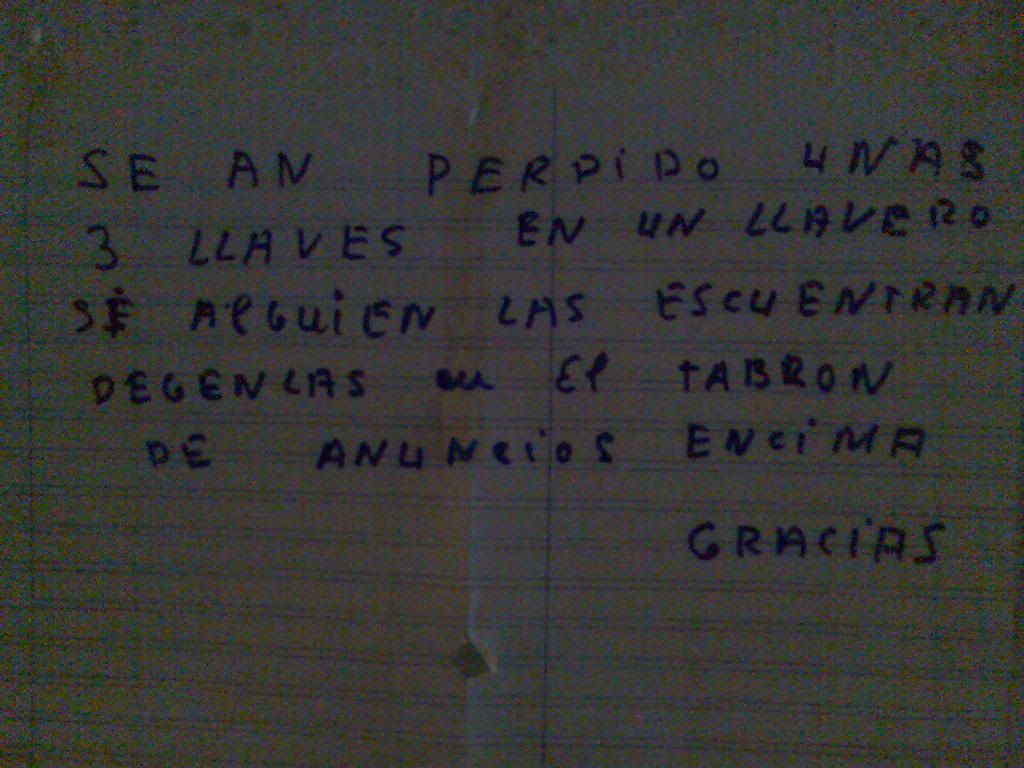 SE AN PERDIDO UNAS
3 LLAVES EN UN LLAVERO
SE AlGUiEN LAS ESCUENTRAN
DEGENLAS en El TABRON
DE ANUNCiOS ENCiMA
GRACiAS